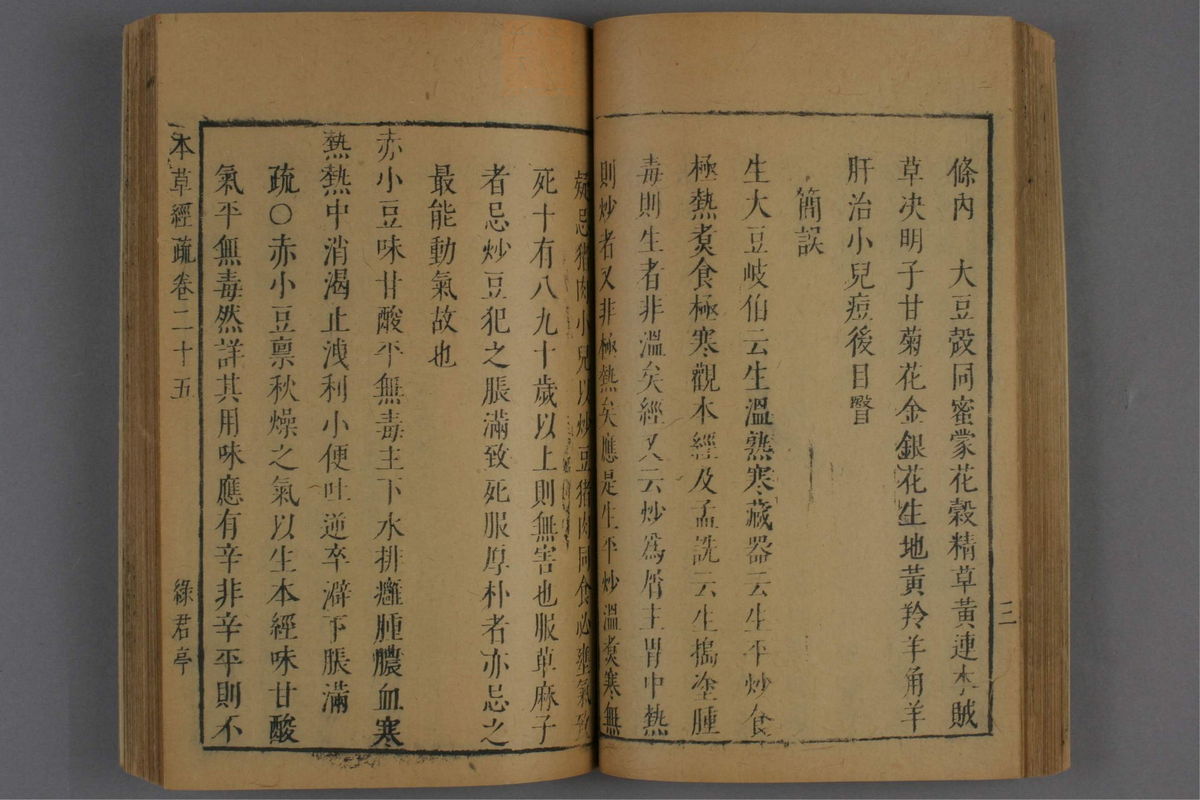 三
條內　大豆殼同蜜蒙花穀精草黃連木賊
草決明子甘菊花金銀花生地黃羚羊角羊
肝治小兒痘後目瞖
簡誤
生大豆岐伯云生溫熟寒藏器云生平炒食
極熱煑食極寒觀本經及孟詵云生搗塗腫
毒則生者非溫矣經又云炒爲屑主胃中熱
則炒者又非極熱矣應是生平炒溫煑寒無
疑忌猪肉小兒以炒豆猪肉同食必壅氣致
死十有八九十歲以上則無害也服萆麻子
者忌炒豆犯之脹滿致死服厚朴者亦忌之
最能動氣故也
赤小豆味甘酸平無毒主下水排癰腫膿血寒
熱熱中消渴止洩利小便吐逆卒澼下脹滿
疏○赤小豆禀秋燥之氣以生本經味甘酸
氣平無毒然詳其用味應有辛非辛平則不
本草經疏卷二十五
綠君亭